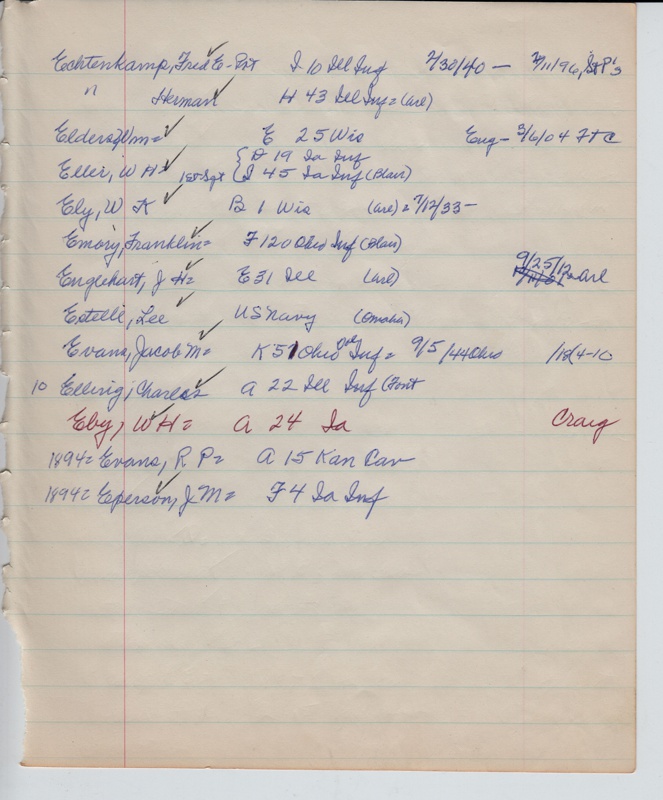 Echtenkamp, Fred E - Pvt I 10 Ill Inf 7/30/40 - 2/11/96, St P's
" Herman H 43 Ill Inf = (arl)
Elders, Wm = E 25 Wis Eng - 3/6/04 Ft C
{ D 19 Ia Inf
Eller, W H = 1st Sgt { I 45 Ia Inf (Blair)
Ely, W K B 1 Wis (arl) = 7/12/33 -
Emory, Franklin = F 120 Ohio Inf (Blair)
Englehart, J H = E 31 Ill (arl) 9/25/12 = arl
Estelle, Lee US Navy (Omaha)
Evans, Jacob M = K 51 Ohio Inf = 9/5/44 Ohio
10 Ellirig, Charles A 22 Ill Inf (Font
Eby, W H = A 24 Ia Craig
1894 = Evans, R P = A 15 Kan Cav
1894 = Eperson, J M = F 4 Ia Inf